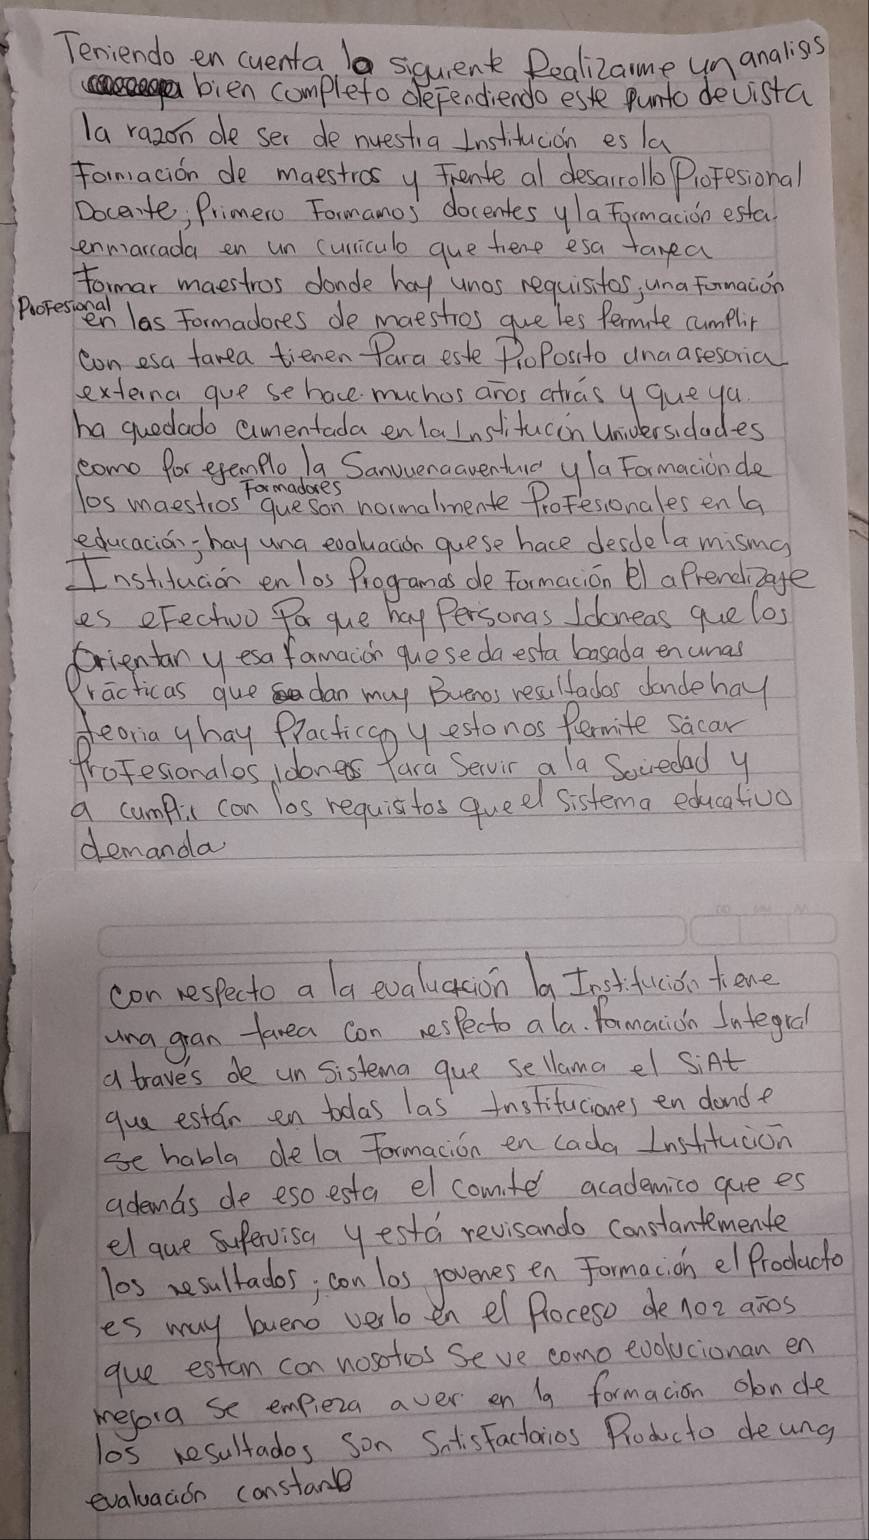 Teniendo en cuenta la siguiente Realizarme un analisis
bien completo defendiendo este punto de vista
la razón de ser de nuestra Institución es la
Formación de maestros y Frente al desarrollo Profesional
Docente; Primero Formamos docentes y la Formación esta
enmarcada en un curriculo que tiene esa tarea
formar maestros donde hay unos requisitos; una Formación
Profesional
en las Formadores de maestros que les Permite cumplir
con esa tarea tienen Para este Proposito una asesoria
externa que se hace muchos años atrás y que ya
ha quedado cimentada en la Institución Universidades
como Por ejemplo la y la Formación de
Formadores
los maestros que son normalmente Profesionales en la
educación; hay una evaluación que se hace desde la misma
Institución en los Programas de Formación El aPrendizaje
es efectivo Por que hay Personas Idoneas que los
Orientan y esa formación que se da esta basada en unas
Prácticas que dan muy Buenos resultados donde hay
teoria y hay Practica y esto nos Permite sacar
Profesionales idoneos Para Servir a la Sociedad y
a cumplir con los requisitos que el sistema educativo
demanda
con respecto a la evaluación la Institución tiene
una gran tarea con respecto a la formación Integral
a través de un sistema que se llama el SiAt
que están en todas las Instituciones en donde
se habla de la Formación en cada Institución
además de eso esta el comité academico que es
el que supervisa y está revisando constantemente
los resultados; con los jovenes en Formación el Producto
es muy bueno verlo en el Proceso de 1 o 2 años
que estan con nosotros se ve como evolucionan en
mejora se empieza a ver en la formación donde
los resultados son Satisfactorios Producto de una
evaluación constante